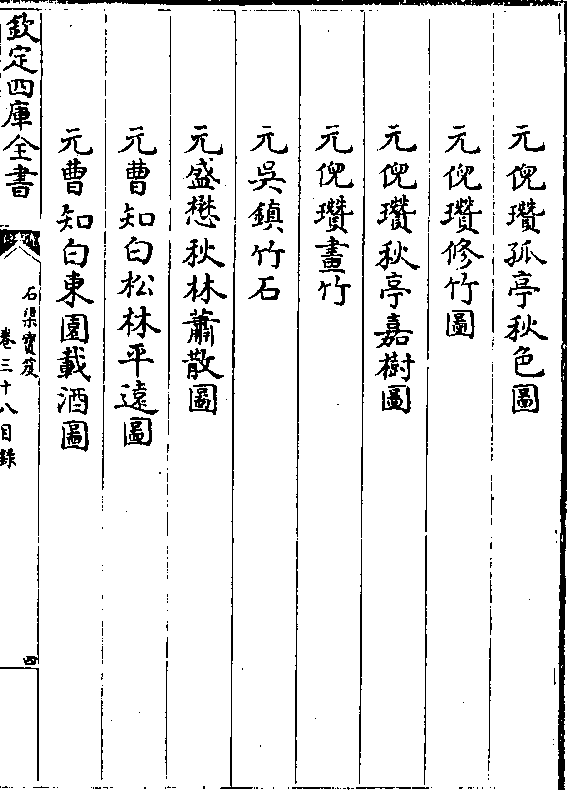 元倪瓚孤亭秋色圖
元倪瓚修竹圖
元倪瓚秋亭嘉樹圖
元倪瓚畫竹
元吳鎮竹石
元盛懋秋林蕭散圖
元曹知白松林平遠圖
元曹知白東園載酒圖
欽定四庫全書
石渠寶笈
卷三十八目錄
四